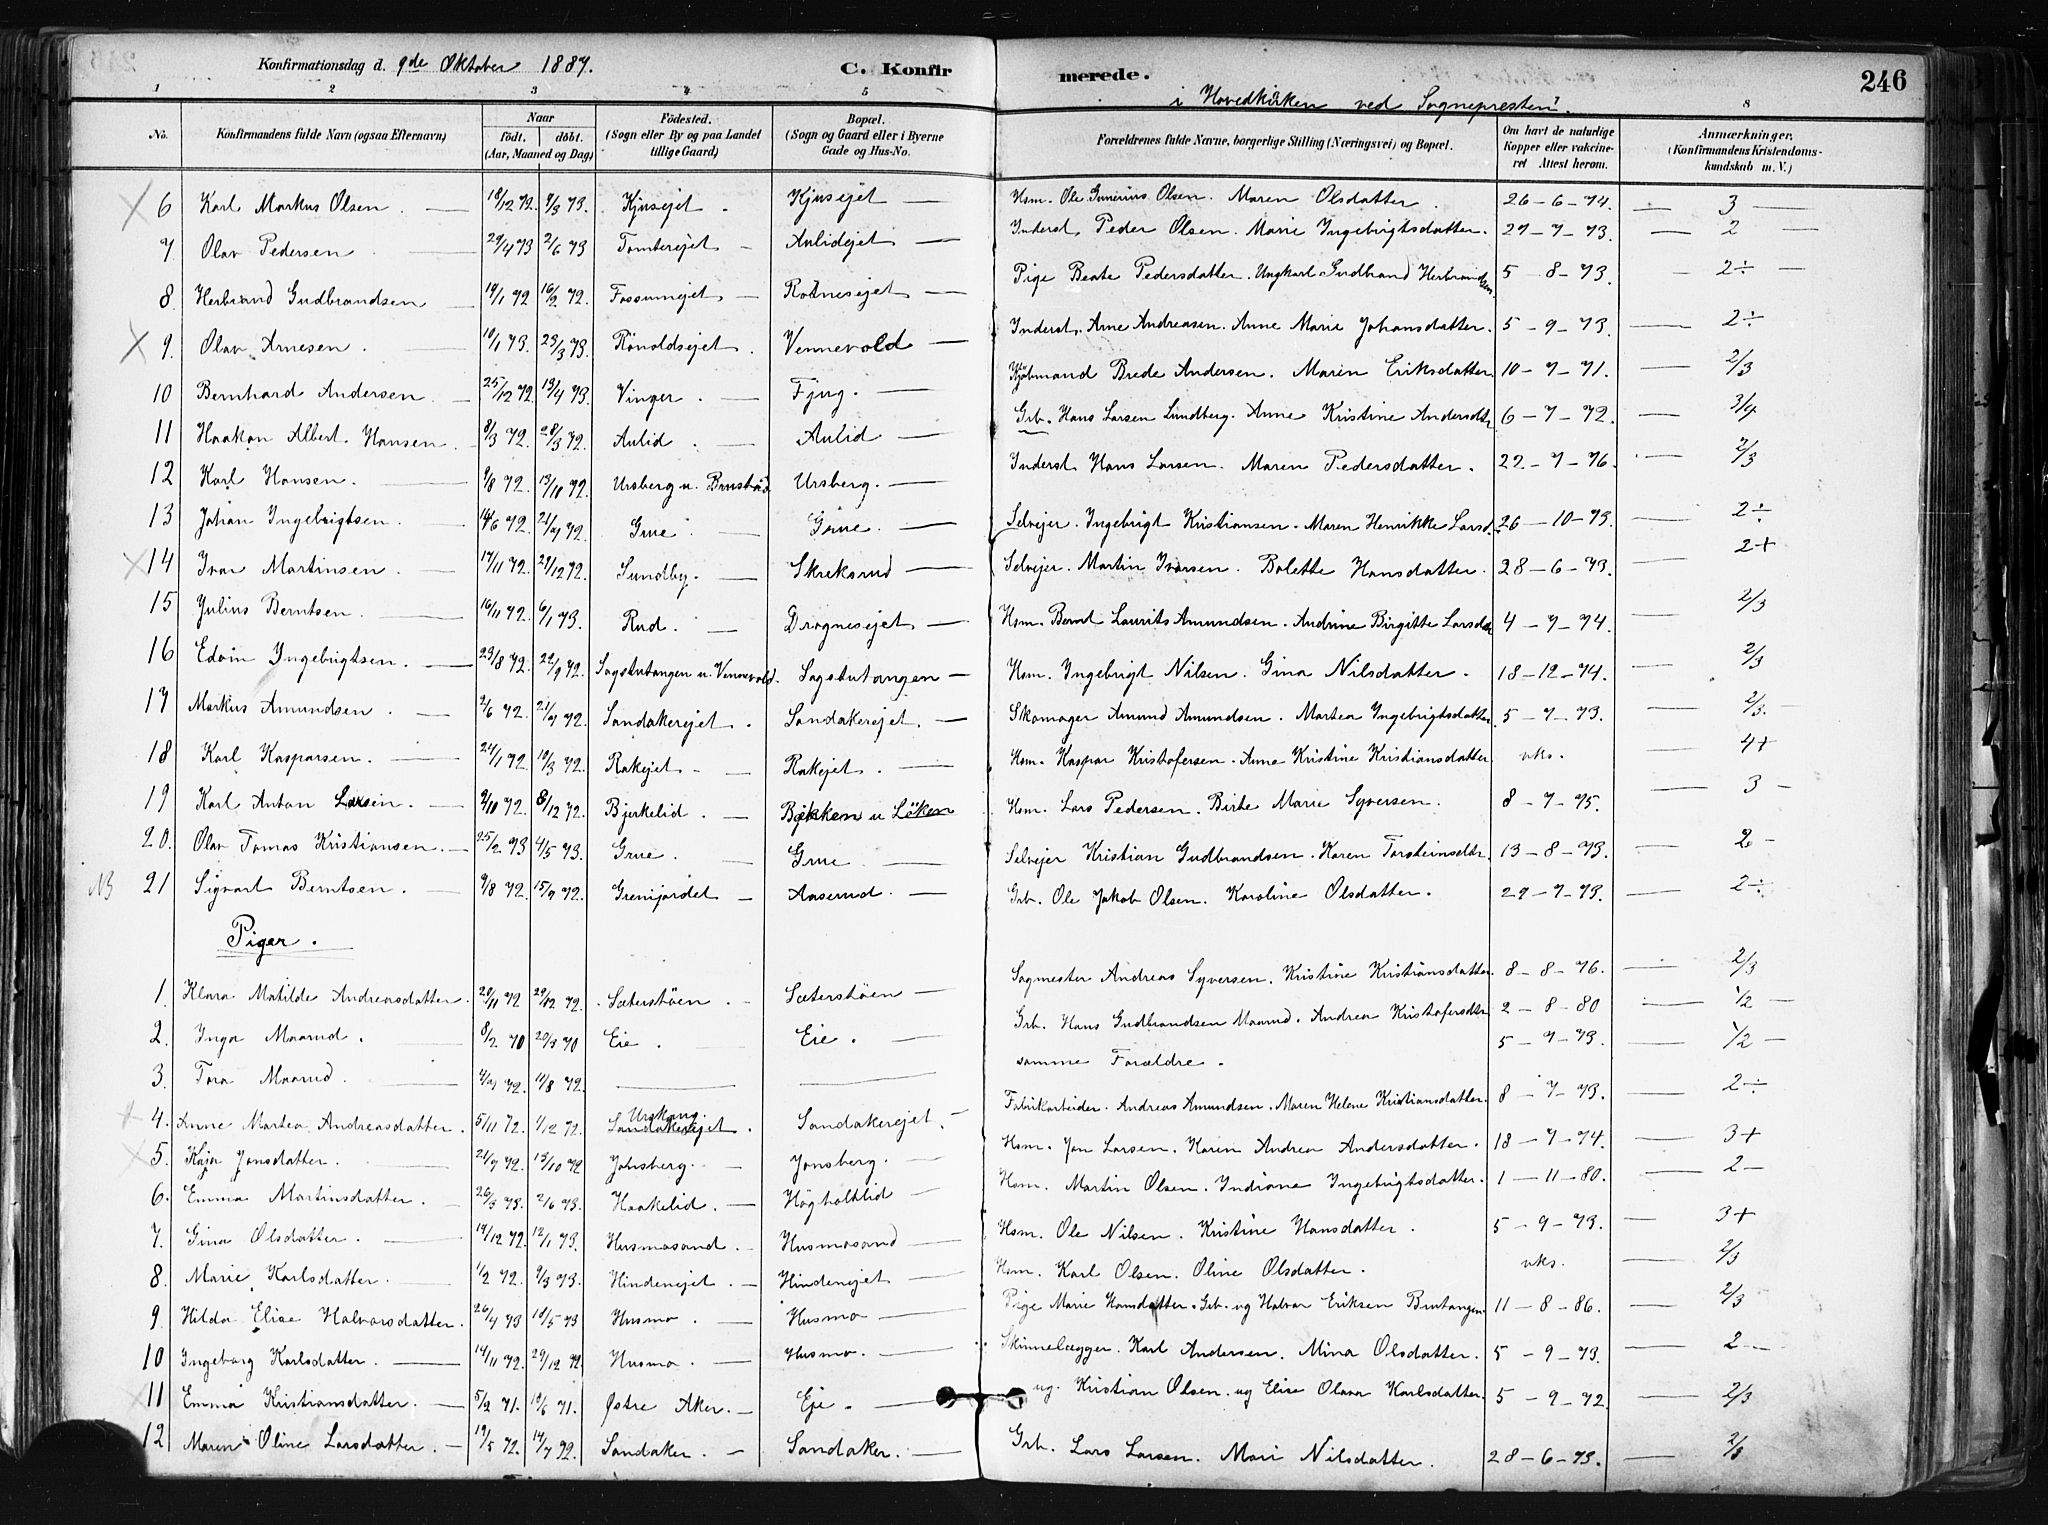 Konfirmationsdag d. 9de Oktober 1887. C. Konfirmerede. 246
i Hovedkirken ved Sognepresten.
1 2 3 4 5 7 8
No. Konfirmandens fulde Navn (ogsaa Efternavn) Naar født. døbt. (Aar, Maaned og Dag) Fødested. (Sogn eller By og paa Landet tillige Gaard) Bopæl. (Sogn og Gaard eller i Byerne Gade og Hus-No. Forældrenes fulde Navne, borgerlige Stilling (Næringsvei) og Bopæl. Om havt de naturlige Kopper eller vakcineret Attest herom. Anmærkninger. (Konfirmandens Kristendomskundskab m. V.)
6 Karl Markus Olsen. 18/12 72. 9/3 73. Kjusejet. Kjusejet Hsm. Ole Gunerius Olsen. Maren Olsdatter. 26-6-74. 3
7 Olav Pedersen 29/4 73 2/6 73 Tomterejet Aulidejet Inderst Peder Olsen. Marie Ingebrigtsdatter. 27-7-73. 2
8. Herbrand Gudbrandsen 14/1 72 16/2 72. Fossumejet Rotnesejet Pige Beate Pedersdatter. Ungkarl Gudbrand Herbrandsen. 5-8-73. 2÷
9. Olav Arnesen. 10/1 73. 23/3 73. Rönoldsejet. Vennevold Inderst. Arne Andreasen. Anne Marie Johansdatter. 5-9-73. 2÷
10 Bernhard Andersen 25/12 72. 13/4 73. Vinger. Fjug. Kjøbmand Brede Andersen. Maren Eriksdatter 10-7-71. 2/3
11 Haakon Albert Hansen. 8/3 72. 28/3 72. Aulid. Aulid Grb. Hans Larsen Lundberg. Anne Kristine Andersdtr 6-7-72. 3/4
12 Karl Hansen. 9/8 72. 13/10 72. Ursberg u. Brustad Ursberg. Inderst Hans Larsen. Maren Pedersdatter. 22-7-76. 2/3
13 Johan Ingebrigtsen. 14/6 72. 21/7 72. Grue Grue. Selvejer. Ingebrigt Kristiansen. Maren Henrikke Larsd. 26-10-73. 2÷
14 Ivar Martinsen. 17/11 72. 29/12 72. Sundby. Skreksrud Selvejer. Martin Ivarsen. Bolette Hansdatter. 28-6-73. 2+
15 Julius Berntsen. 16/11 72. 6/1 73. Rud. Drognesejet Hsm. Bernt Laurits Amundsen. Andrine Birgitte Larsdtr 4-7-74. 2/3
16 Edvin Ingebrigtsen. 23/8 72. 22/9 72. Sagstutangen u. Vennevold. Sagstutangen Hsm. Ingebrigt Nilsen. Gina Nilsdatter. 18-12-74. 2/3
17 Markus Amundsen. 2/6 72. 21/7 72. Sandakerejet. Sandakerejet. Skomager Amund Amundsen. Martea Ingebrigtsdatter. 5-7-73. 2/3.
18 Karl Kasparsen. 24/1 72. 10/3 72. Rakejet Rakejet. Hsm. Kaspar Kristofersen. Anne Kristine Kristiansdatter vks. 4+
19 Karl Anton Larsen. 9/10 72. 8/12 72. Bjerkelid. Bekken u Löken Hsm. Lars Pedersen. Birte Marie Syversen. 8-7-75. 3
20. Olav Tomas Kristiansen. 25/2 73 4/5 73. Grue. Grue Selvejer Kristian Gudbrandsen. Karen Torsteinsdtr. 13-8-73. 2
NB 21 Sigvart Berntsen. 9/8 72. 15/9 72. Grenijordet Aaserud. Grb. Ole Jakob Olsen. Karoline Olsdatter. 29-7-73. 2÷
Piger.
1. Klara Matilde Andreasdatter. 20/11 72 29/12 72. Sæterstöen. Sæterstöen Sagmester Andreas Syversen. Kristine Kristiansdatter. 8-8-76. 2/3
2. Inga Maarud. 8/2 70 20/3 70 Eie. Eie. Grb. Hans Gudbrandsen Maarud. Andrea Kristofersdtr 2-8-80 1/2
3. Tora Maarud. 4/7 72. 11/8 72. samme Forældre. 5-9-73. 1/2
4. Anne Martea Andreasdatter. 5/11 72. 1/12 72. Urskaug. Sandakerejet. Sandakerejet. Fabrikarbeider. Andreas Amundsen. Maren Helene Kristiansdatter. 8-7-73. 2÷
5. Kaja Jonsdatter. 21/7 72. 13/10 72 Jonsberg. Jonsberg. Hsm. Jon Larsen. Karen Andrea Andersdatter. 18-7-74. 3+
6. Emma Martinsdatter. 26/3 73. 2/6 73. Haakelid. Högholtlid Hsm. Martin Olsen. Indiane Ingebrigtsdatter. 1-11-80. 2
7. Gina Olsdatter. 14/12 72. 12/1 73. Husmosand. Husmosand Hsm. Ole Nilsen. Kristine Hansdatter. 5-9-73. 3+
8. Marie Karlsdatter. 1/2 72. 9/3 73. Hindenejet. Hindenejet Hsm. Karl Olsen. Oline Olsdatter. vks. 2/3
9. Hilda Elise Halvorsdatter. 26/4 73 18/5 73 Husmo. Husmo Pige Marie Hansdatter. Grb. ug Halvor Eriksen Brutangen 11-8-86. 2/3
10 Ingeborg Karlsdatter. 14/11 72. 29/12 72. Husmo. Husmo. Skinnelægger. Karl Andersen. Mina Olsdatter. 5-9-73. 2
11 Emma Kristiansdatter. 5/2 71. 19/6 71. Østre Aker. Eje. ug. Kristian Olsen. ug Elise Olava Karlsdatter. 5-9-72. 2/3
12 Maren Oline Larsdatter. 19/5 72. 14/7 72. Sandaker. Sandaker. Grb. Lars Larsen. Mari Nilsdatter. 28-6-73. 2/3